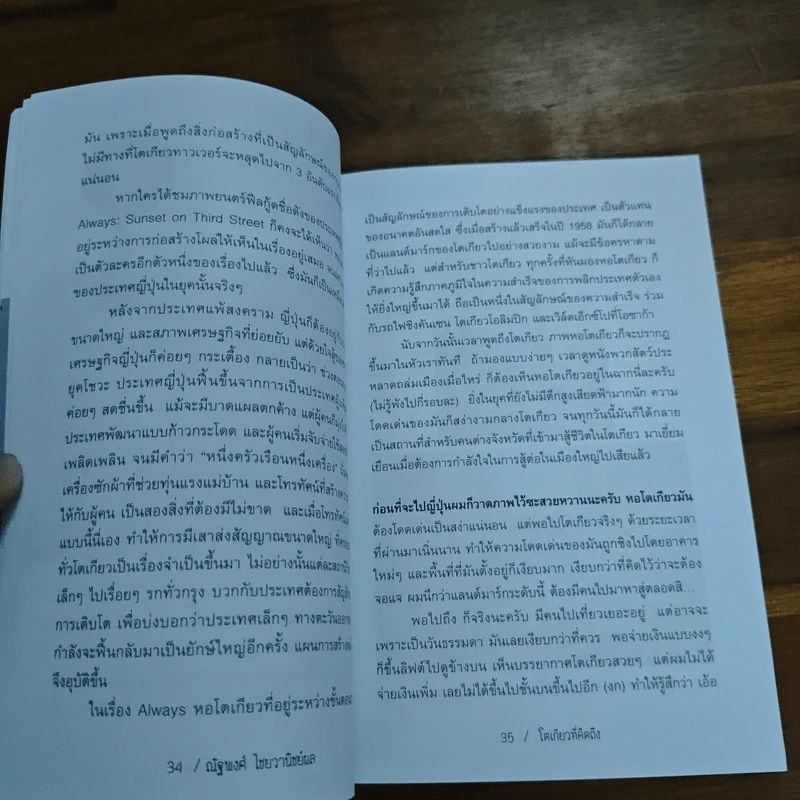 มัน เพราะเมื่อพูดถึงสิ่งก่อสร้างที่เป็นสัญลักษณ์ของ
ไม่มีทางที่โตเกียวทาวเวอร์จะหลุดไปจาก 3 อันดับแรก
แน่นอน
หากใครได้ชมภาพยนตร์ฟีลกู้ดชื่อดังของประเทศ
Always: Sunset on Third Street ก็คงจะได้เห็นว่า
อยู่ระหว่างการก่อสร้างโผล่ให้เห็นในเรื่องอยู่เสมอ จน
เป็นตัวละครอีกตัวหนึ่งของเรื่องไปแล้ว ซึ่งมันก็เป็น
ของประเทศญี่ปุ่นในยุคนั้นจริงๆ
หลังจากประเทศแพ้สงคราม ญี่ปุ่นก็ต้องอยู่กับ
ขนาดใหญ่ และสภาพเศรษฐกิจที่ย่อยยับ แต่ด้วยใจสู้
เศรษฐกิจญี่ปุ่นก็ค่อยๆ กระเตื้อง กลายเป็นว่า ช่วง
ยุคโชวะ ประเทศญี่ปุ่นฟื้นขึ้นจากการเป็นประเทศผู้แพ้
ค่อยๆ สดชื่นขึ้น แม้จะมีบาดแผลตกค้าง แต่ผู้คนก็
ประเทศพัฒนาแบบก้าวกระโดด และผู้คนเริ่มจับจ่ายใช้สอย
เพลิดเพลิน จนมีคำว่า “หนึ่งครัวเรือนหนึ่งเครื่อง”
เครื่องซักผ้าที่ช่วยทุ่นแรงแม่บ้าน และโทรทัศน์ที่สร้างความ
ให้กับผู้คน เป็นสองสิ่งที่ต้องมีไม่ขาด และเมื่อโทรทัศน์
แบบนี้นี่เอง ทำให้การมีเสาส่งสัญญาณขนาดใหญ่
ทั่วโตเกียวเป็นเรื่องจำเป็นขึ้นมา ไม่อย่างนั้นแต่ละสถานี
เล็กๆ ไปเรื่อยๆ รกทั่วกรุง บวกกับประเทศต้องการสัญลักษณ์
การเติบโต เพื่อบ่งบอกว่าประเทศเล็กๆ ทางตะวันออก
กำลังจะฟื้นกลับมาเป็นยักษ์ใหญ่อีกครั้ง แผนการสร้าง
จึงอุบัติขึ้น
ในเรื่อง Always หอโตเกียวที่อยู่ระหว่างขั้นตอน
34 / ณัฐพงศ์ ไชยวานิชย์ผล
เป็นสัญลักษณ์ของการเติบโตอย่างแข็งแรงของประเทศ เป็นตัวแทน
ของอนาคตอันสดใส ซึ่งเมื่อสร้างแล้วเสร็จในปี 1958 มันก็ได้กลาย
เป็นแลนด์มาร์กของโตเกียวไปอย่างสวยงาม แม้จะมีข้อครหาตาม
ที่ว่าไปแล้ว แต่สำหรับชาวโตเกียว ทุกครั้งที่หันมองหอโตเกียวก็
เกิดความรู้สึกภาคภูมิใจในความสำเร็จของการพลิกประเทศตัวเอง
ให้ยิ่งใหญ่ขึ้นมาได้ ถือเป็นหนึ่งในสัญลักษณ์ของความสำเร็จ ร่วม
กับรถไฟชิงคันเซน โตเกียวโอลิมปิก และเวิร์ลด์เอ็กซ์โปที่โอซาก้า
นับจากวันนั้นเวลาพูดถึงโตเกียว ภาพหอโตเกียวก็จะปรากฏ
ขึ้นมาในหัวเราทันที ถ้ามองแบบง่ายๆ เวลาดูหนังพวกสัตว์ประ
หลาดถล่มเมืองเมื่อไหร่ ก็ต้องเห็นหอโตเกียวอยู่ในฉากนี่ละครับ
(ไม่รู้พังไปกี่รอบละ) ยิ่งในยุคที่ยังไม่มีตึกสูงเสียดฟ้ามากนัก ความ
โดดเด่นของมันก็สง่างามกลางโตเกียว จนทุกวันนี้มันก็ได้กลาย
เป็นสถานที่สำหรับคนต่างจังหวัดที่เข้ามาสู้ชีวิตในโตเกียว มาเยี่ยม
เยือนเมื่อต้องการกำลังใจในการสู้ต่อในเมืองใหญ่ไปเสียแล้ว
ก่อนที่จะไปญี่ปุ่นผมก็วาดภาพไว้ซะสวยหวานนะครับ หอโตเกียวมัน
ต้องโดดเด่นเป็นสง่าแน่นอน แต่พอไปโตเกียวจริงๆ ด้วยระยะเวลา
ที่ผ่านมาเนิ่นนาน ทำให้ความโดดเด่นของมันถูกชิงไปโดยอาคาร
ใหม่ๆ และพื้นที่ที่มันตั้งอยู่ก็เงียบมาก เงียบกว่าที่คิดไว้ว่าจะต้อง
จอแจ ผมนึกว่าแลนด์มาร์กระดับนี้ ต้องมีคนไปมาหาสู่ตลอดสิ...
พอไปถึง ก็จริงนะครับ มีคนไปเที่ยวเยอะอยู่ แต่อาจจะ
เพราะเป็นวันธรรมดา มันเลยเงียบกว่าที่ควร พอจ่ายเงินแบบงงๆ
ก็ขึ้นลิฟต์ไปดูข้างบน เห็นบรรยากาศโตเกียวสวยๆ แต่ผมไม่ได้
จ่ายเงินเพิ่ม เลยไม่ได้ขึ้นไปชั้นบนขึ้นไปอีก (งก) ทำให้รู้สึกว่า เอ้อ
35 / โตเกียวที่คิดถึง